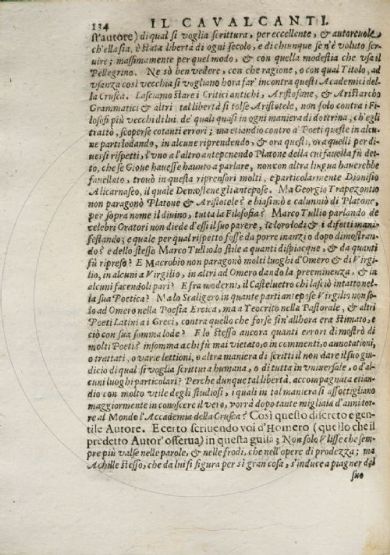 134 IL CAVALCANTI.
st'autore) di qual si voglia scrittura, per eccellente, & autoreuole,
ch'ella sia, è stata libertà di ogni secolo, e di chiunque se n'è voluto ser-
uire; massimamente per quel modo, & con quella modestia che vsa il
Pellegrino. Ne sò ben vedere, con che ragione, o con qual Titolo, ad
vsanza così vecchia si vogliano hora far' incontra questi Academici del-
la Crusca. Lasciamo stare i Critici antichi, Aristofane, & Aristarcho
Grammatici & altri: tal libertà si tolse Aristotele, non solo contra i Filo-
sofi più vecchi di lui, de' quali quasi in ogni maniera di dottrina, ch'egli
trattò, scoperse cotanti errori; ma etiandio contro a' Poeti queste in alcu-
ne parti lodando, in alcune riprendendo; & ora questi, ora quelli per di-
uersi rispetti, l'vno a l'altro anteponendo Platone della cui fauella fù det-
to, che se Gioue hauesse hauuto a parlare, non con altra lingua hauerebbe
fauellato, trouò in questa riprensori molti, e particolarmente Dionisio
Alicarnaseo, il quale Demostene gli antepose. Ma Georgio Trapezontio
non paragonò Platone & Aristotele? e biasimò e calunniò di Platone,
per sopra nome il diuino, tutta la Filosofia? Marco Tullio parlando de
celebri Oratori non diede d'essi il suo parere, le loro lodi & i difetti mani-
festando; e quale per qual rispetto fosse da porre inanzi o dopo dimostran-
do? e dello stesso Marco Tullio lo stile a quanti dispiacque, & da quanti
fù ripreso? E Macrobio non paragonò molti luoghi d'Omero & di Virgi-
lio, in alcuni a Virgilio, in altri ad Omero dando la preeminenza, & in
alcuni facendoli pari? E fra moderni, il Casteluetro chi lasciò intatto nel-
la sua Poetica? Ma lo Scaligero in quante parti antepose Virgilio non so-
lo ad Omero nella Poesia Eroica, ma a Teocrito nella Pastorale, & altri
Poeti Latini a i Greci, contra quello che forse fin' allhora era stimato, e
ciò con sua somma lode? E lo stesso ancora quanti errori dimostrò di
molti Poeti? insomma a chi fù mai vietato, o in commenti, o annotationi,
o trattati, o varie lettioni, o altra maniera di scritti il non dare il suo giu-
dicio di qual si voglia scrittura humana, o di tutta in vniuersale, o d'al-
cuni luoghi particolari? Perche dunque tal libertà, accompagnata etian-
dio con molto vtile degli studiosi, i quali in tal maniera si assottigliano
maggiormente in conoscere il vero, vorrà dopo tante migliaia d'anni tor-
re al Mondo l'Academia della Crusca? Così questo discreto e gen-
tile Autore. E certo scriuendo voi d'Homero (quello che il
predetto Autor' osserua) in questa guisa; Non solo Vlisse che sem-
pre più valse nelle parole, & nelle frodi, che nell'opere di prodezza; ma
Achille stesso, che da lui si figura per sì gran cosa, s'induce a piagner del
suo